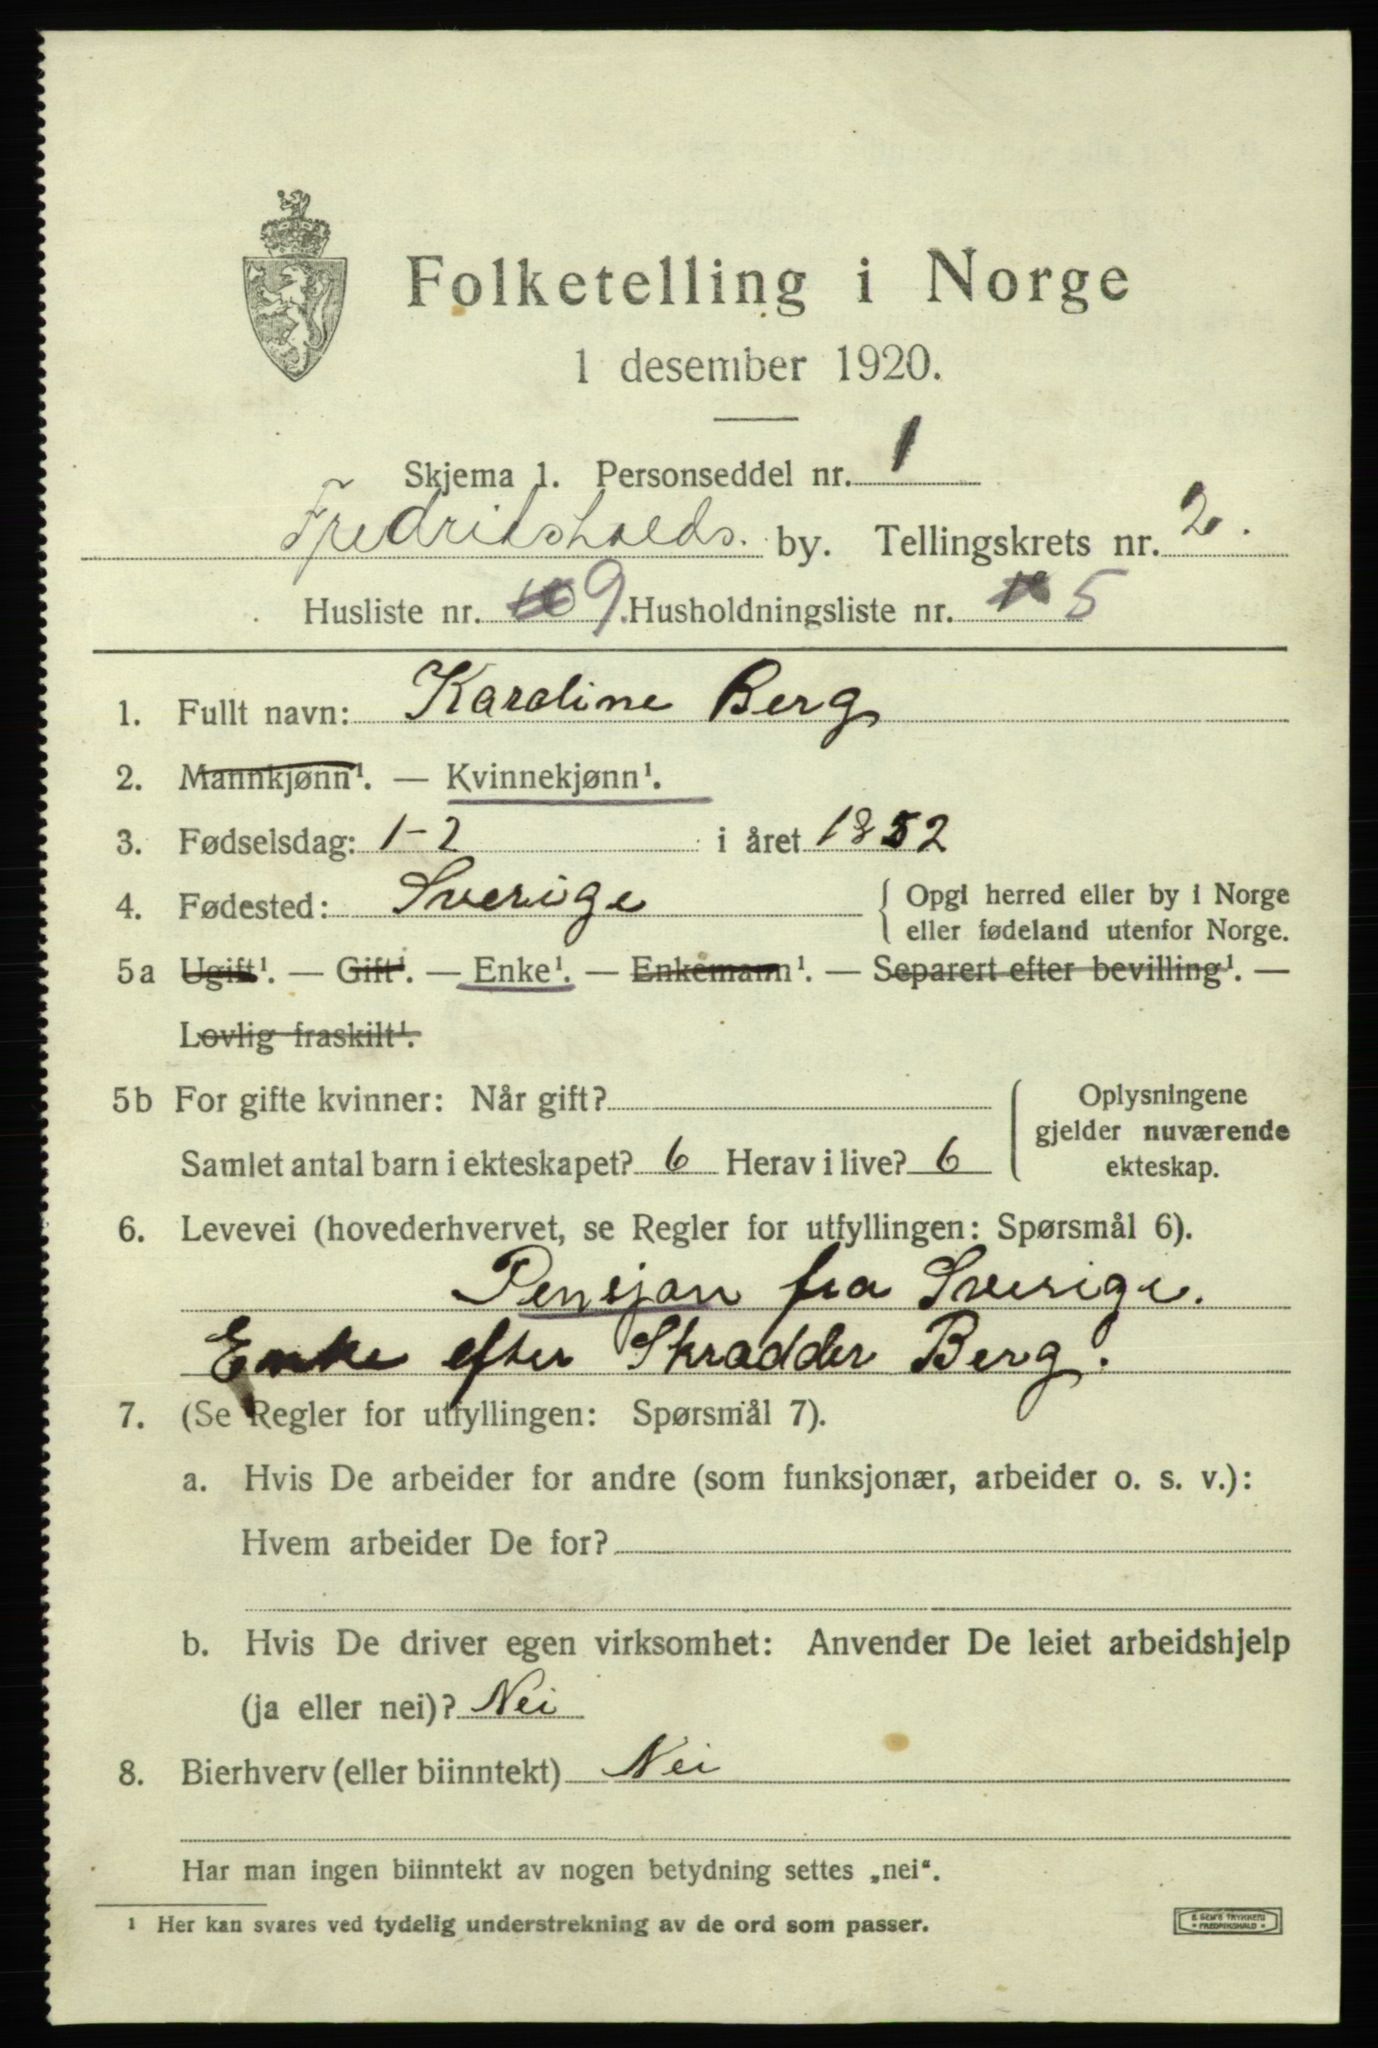 Folketelling i Norge
1 desember 1920.
Skjema 1. Personseddel nr. 1
Fredrikshalds. by. Tellingskrets nr. 2.
Husliste nr. 10 9. Husholdningsliste nr. 5
1. Fullt navn: Karoline Berg
2. Mannkjønn¹. — Kvinnekjønn¹.
3. Fødselsdag: 1-2 i året 1852
4. Fødested: Sverige { Opgi herred eller by i Norge
eller fødeland utenfor Norge.
5a Ugift¹. — Gift¹. — Enke¹. — Enkemann¹. — Separert efter bevilling¹. —
Lovlig fraskilt¹.
5b For gifte kvinner: Når gift? ( Oplysningene
gjelder nuværende
Samlet antal barn i ekteskapet? 6 Herav i live? 6 ekteskap.
6. Levevei (hovederhvervet, se Regler for utfyllingen: Spørsmål 6).
Pensjon fra Sverige.
Enke efter Skradder Berg.
7. (Se Regler for utfyllingen: Spørsmål 7).
a. Hvis De arbeider for andre (som funksjonær, arbeider o. s. v.):
Hvem arbeider De for?
b. Hvis De driver egen virksomhet: Anvender De leiet arbeidshjelp
(ja eller nei)? Nei
8. Bierhverv (eller biinntekt) Nei
Har man ingen biinntekt av nogen betydning settes „nei“.
¹ Her kan svares ved tydelig understrekning av de ord som passer.
E. SEM'S TRYKKERI
• FREDRIKSHALD •